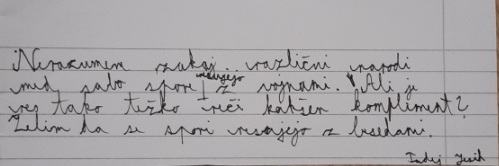 Nerazumem zakaj različni narodi
med sabo spore rešujejo z vojnami. Ali je
res tako težko reči kakšen kompliment?
Želim da se spori resujejo z besedami.
Tadej